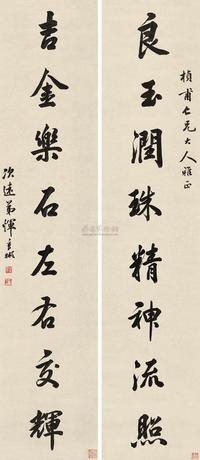 楨甫仁兄大人雅正
良玉潤珠精神流照
吉金樂石左右交輝
次遠弟惲彥彬